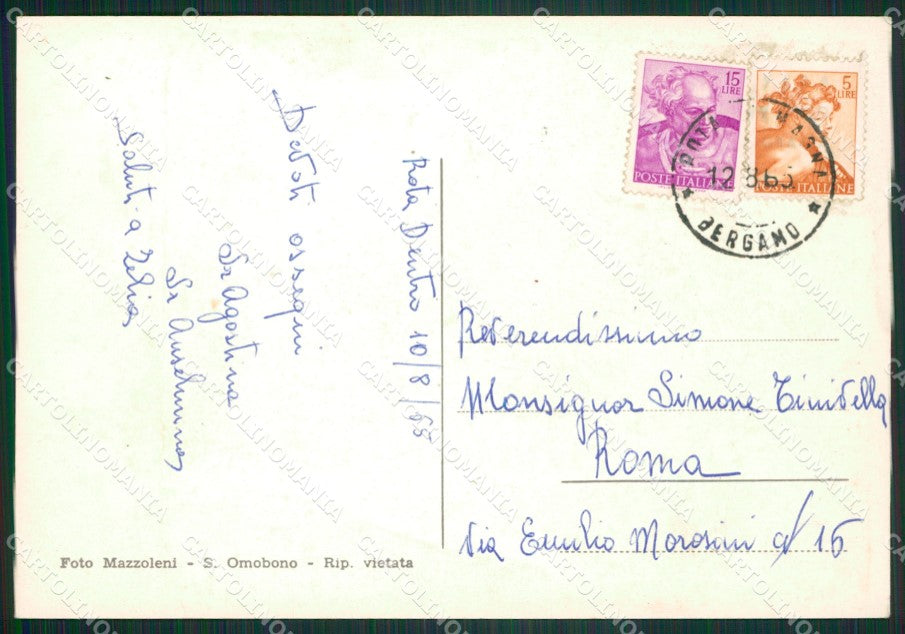 Rota Dentro 10/8/65
Devoti ossequi
Sr Agostina
Sr Anselmina
Saluti a Zelia
15
LIRE
POSTE ITALIANE
5
LIRE
POSTE ITALIANE
12 8 65
BERGAMO
Reverendissimo
Monsignor Simone
Roma
Via Emilio Morosini 16
Foto Mazzoleni - S. Omobono - Rip. vietata
CARTOLINOMANIA